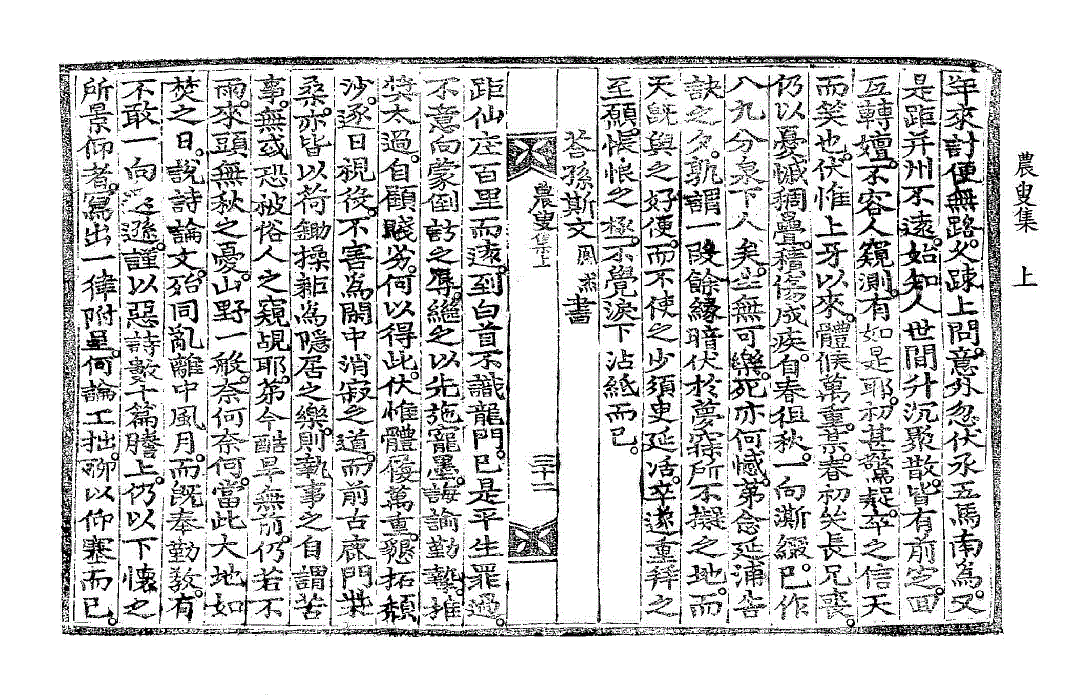 農叟集 上
年來討便無路久疎上問意外忽伏承五馬南爲又
是距幷州不遠始知人世間升沉聚散皆有前芝回
互轉嬗不容人窺測有如是耶初甚驚疑卒之信天
而笑也伏惟上牙以來體候萬重某春初矣長兄喪
仍以憂慽稠疊積傷成疾自春徂秋一向澌綴已作
八九分泉下人矣些無可樂死亦何憾第念延浦告
訣之夕孰謂一段餘緣暗伏於夢寐所不擬之地而
天旣與之好便而不使之少須臾延活卒遂重拜之
至願悵恨之極不覺淚下沾紙而已
答孫斯文書
農叟集上
三十二
距仙庄百里而遠到白首不識龍門已是平生罪過
不意向蒙倒訪之辱繼之以先施寵墨誨論勤摯推
奬太過自顧賤劣何以得此伏惟體履萬重懇拓頹
沙逐日視役不害爲閒中消寂之道而前古鹿門
桑亦皆以荷鋤操耜爲隱居之樂則執事之自謂苦
事無或恐被俗人之窺覘耶弟今酷旱無前仍若不
雨來頭無秋之憂山野一般奈何奈何當此大地如
焚之日說詩論文殆同亂離中風月而旣奉勤敎有
不敢一向遜謹以惡詩數十篇謄上仍以下懷之
所景仰者寫出一律附呈何論工拙聊以仰塞而已